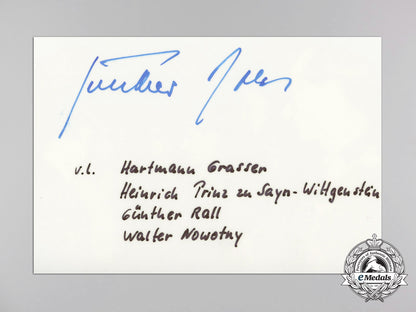 Günther Rall
v.l. Hartmann Grasser
Heinrich Prinz zu Sayn-Wittgenstein
Günther Rall
Walter Nowotny
eMedals